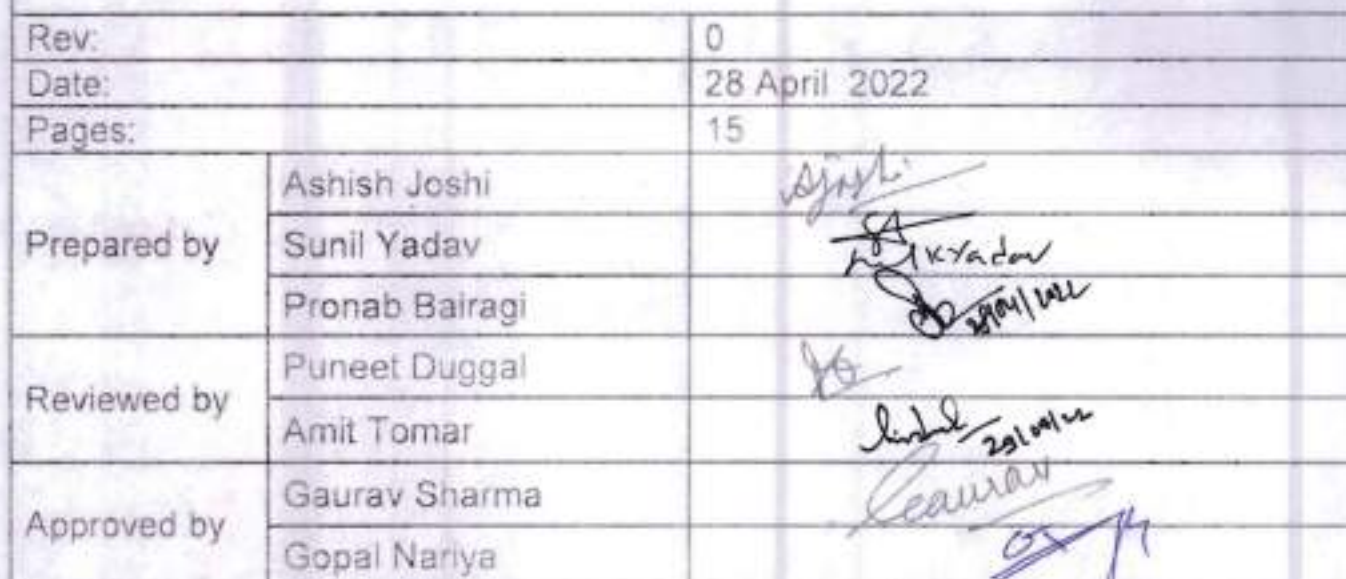 Rev: 0
Date: 28 April 2022
Pages: 15
Prepared by
Ashish Joshi AJoshi
Sunil Yadav KYadav
Pronab Bairagi
Reviewed by
Puneet Duggal
Amit Tomar 29/04/22
Approved by
Gaurav Sharma Gaurav
Gopal Nariya